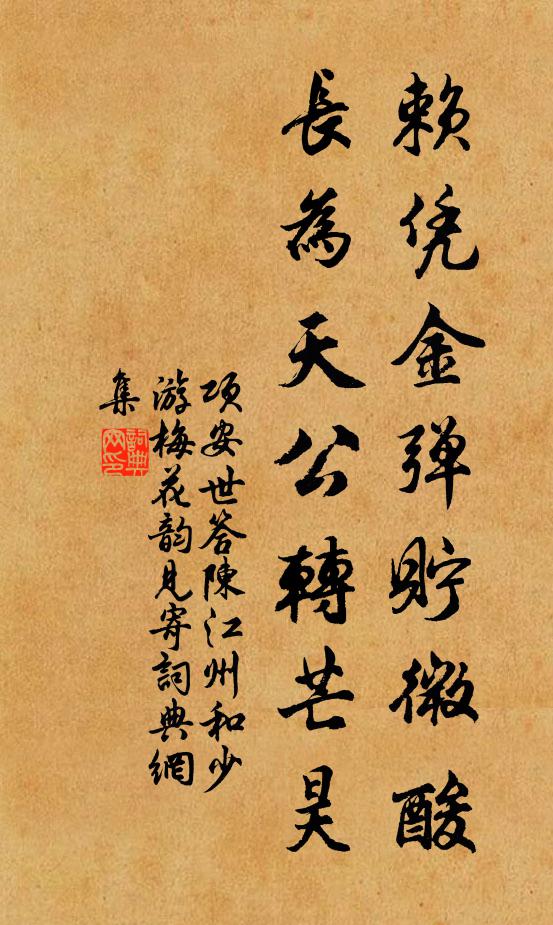 賴凭金弹貯微酸
長為天公轉芒昊
项安世答陳江州和少
游梅花韵見寄詞典網
集
詞典網印